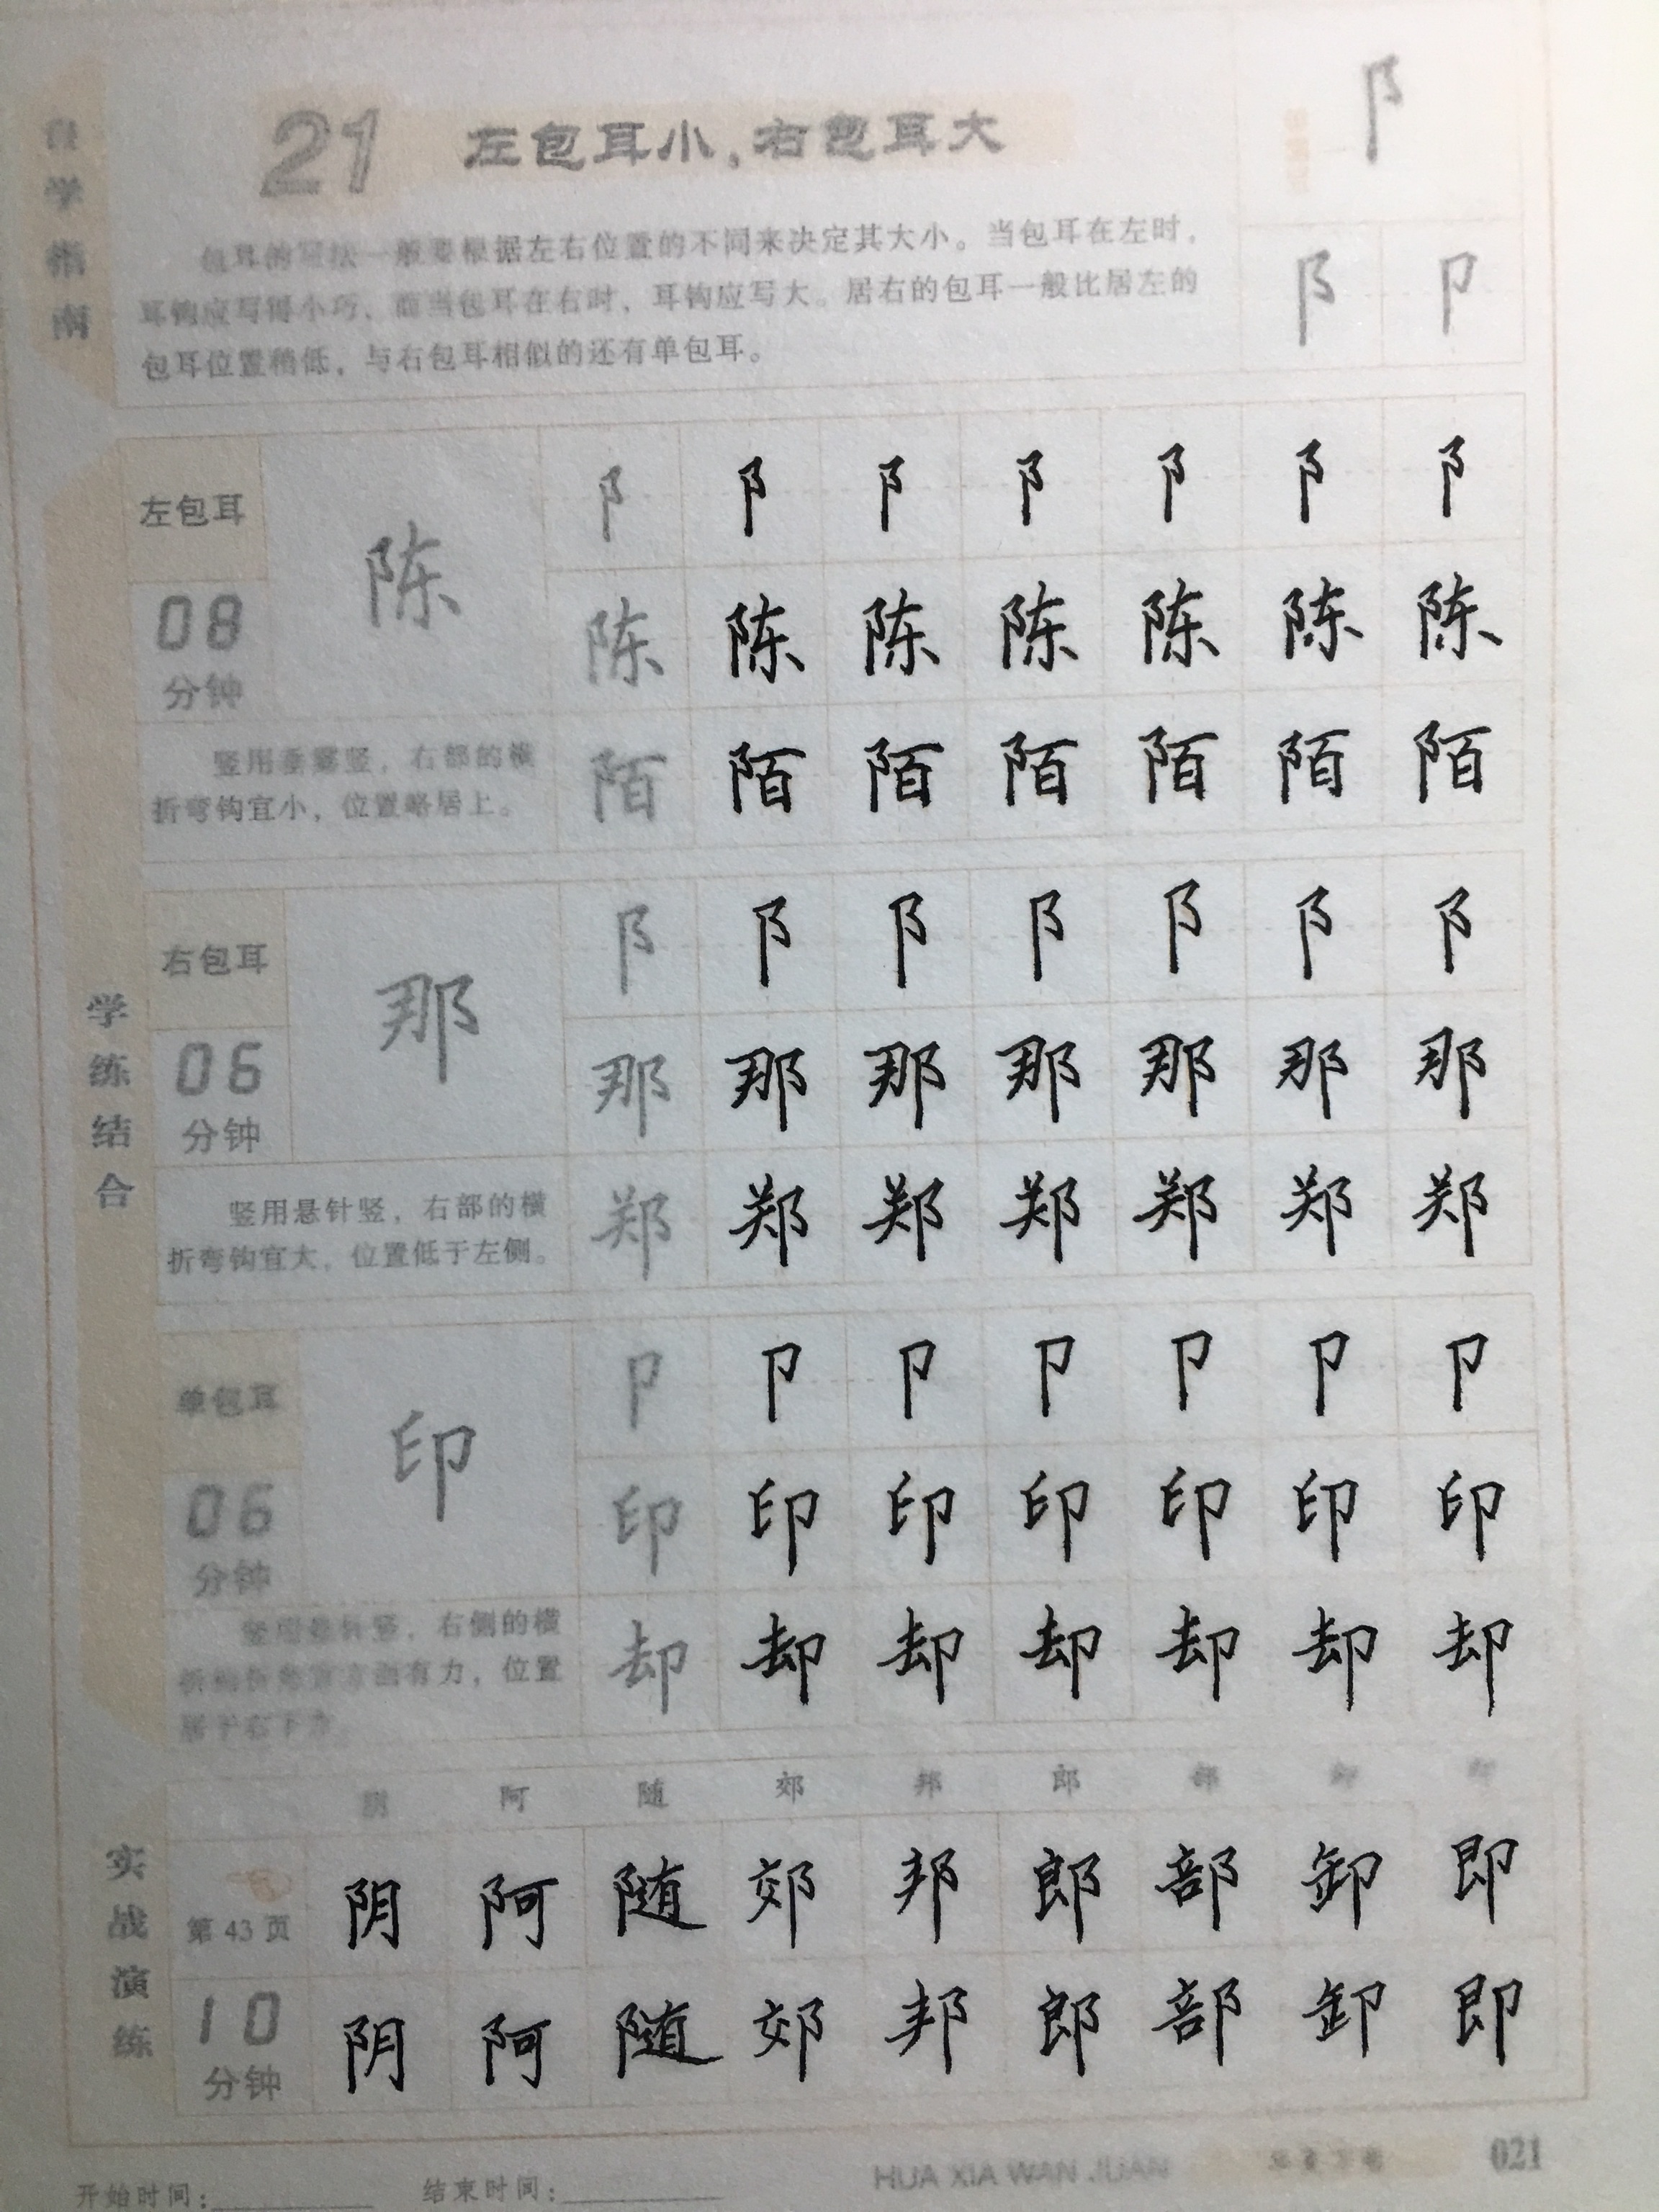 自学指南
21 左包耳小，右包耳大
阝
包耳的写法一般要根据左右位置的不同来决定其大小。当包耳在左时，
耳钩应写得小巧，而当包耳在右时，耳钩应写大。居右的包耳一般比居左的
包耳位置稍低，与右包耳相似的还有单包耳。
阝 卩
学练结合
左包耳
08
分钟
陈
竖用垂露竖，右部的横
折弯钩宜小，位置略居上。
阝 阝 阝 阝 阝 阝 阝
陈 陈 陈 陈 陈 陈 陈
陌 陌 陌 陌 陌 陌 陌
右包耳
06
分钟
那
竖用悬针竖，右部的横
折弯钩宜大，位置低于左侧。
阝 阝 阝 阝 阝 阝 阝
那 那 那 那 那 那 那
郑 郑 郑 郑 郑 郑 郑
单包耳
06
分钟
印
竖用悬针竖，右侧的横
有力，位置
居于右下方。
卩 卩 卩 卩 卩 卩 卩
印 印 印 印 印 印 印
却 却 却 却 却 却 却
实战演练
阴 阿 随 郊 邦 郎 部 卸
第 43 页
阴 阿 随 郊 邦 郎 部 卸 即
10
分钟
阴 阿 随 郊 邦 郎 部 卸 即
开始时间： 结束时间： HUA XIA WAN JUAN 021